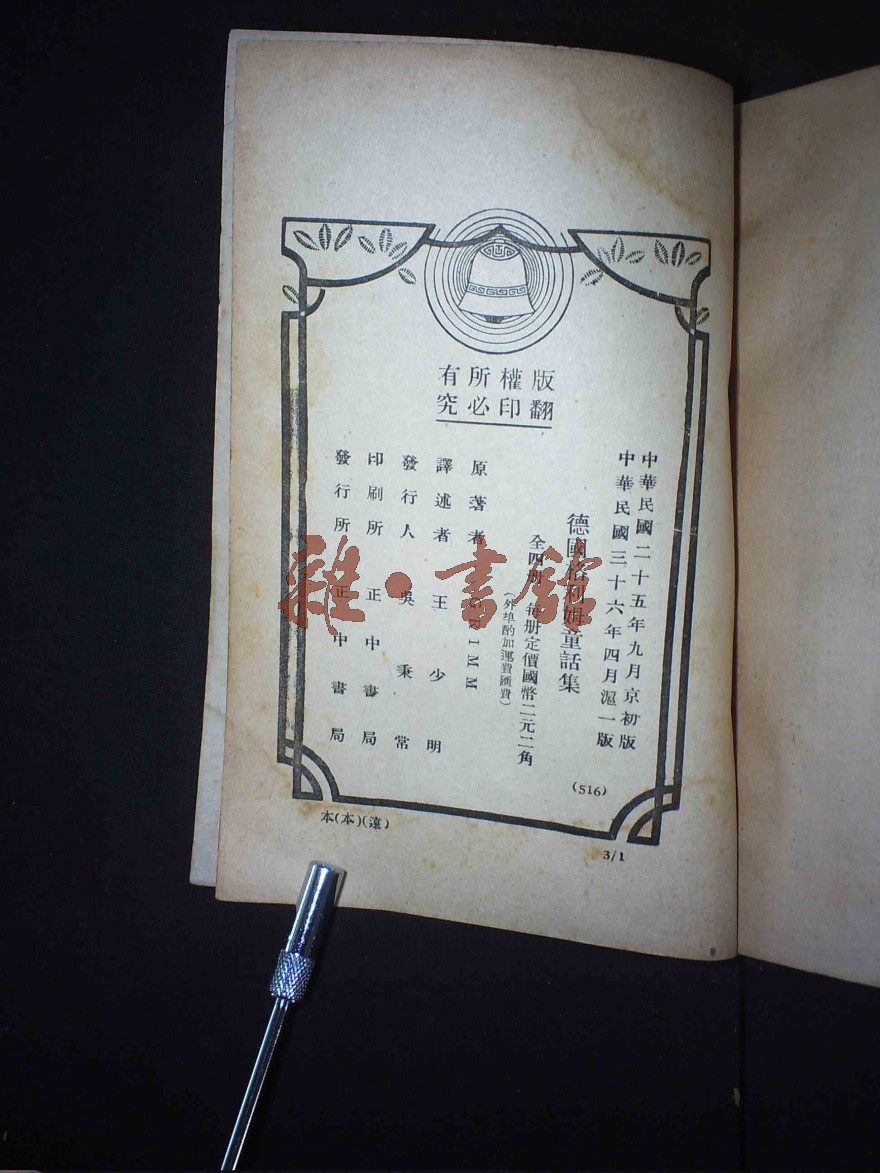 版權所有
翻印必究
中華民國二十五年九月京初版
中華民國三十六年四月滬一版
德國格利姆童話集
全四冊 每冊定價國幣二元二角
(外埠酌加運費匯費)
原著者 GRIMM
譯述者 王少明
發行人 吳秉常
印刷所 正中書局
發行所 正中書局
(516)
本(本)(遠)
3/1
雜·書館